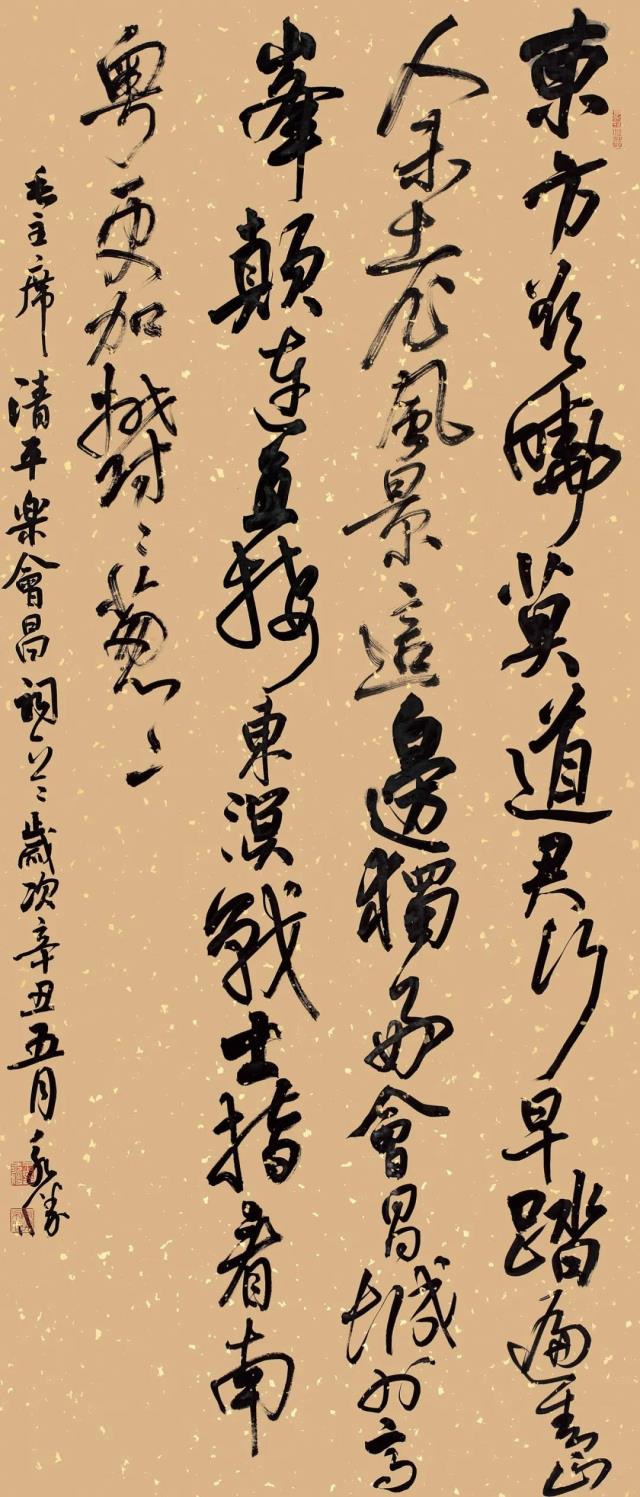 東方欲曉莫道君行早踏遍青山
人未老風景這邊獨好會昌城外高
峯顛連直接東溟戰士指看南
粵更加鬱〻蔥〻
毛主席清平樂會昌詞一首歲次辛丑五月永勝